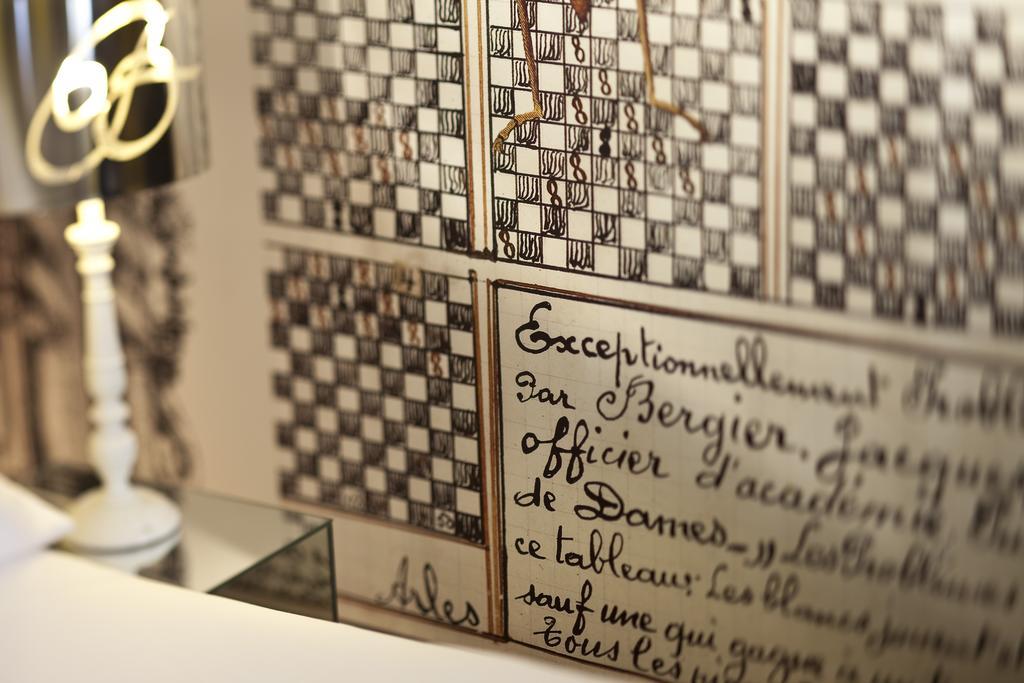 Exceptionnellement
Par Bergier, Jacques
officier d'académie
de Dames_ ,, Les Problèmes
ce tableau: Les blancs jouent
sauf une qui gagne
Tous les
Arles